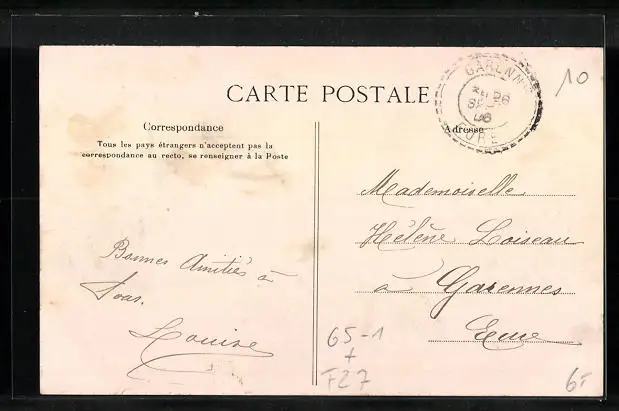 CARTE POSTALE
Correspondance
Tous les pays étrangers n'acceptent pas la
correspondance au recto, se renseigner à la Poste
Bonnes Amitiés à
Tous.
Louise
GARENN
26
EURE
Adresse
Mademoiselle
Hélène Loiseau
à Garennes
Eure
10
G5-1
+
F27
6-